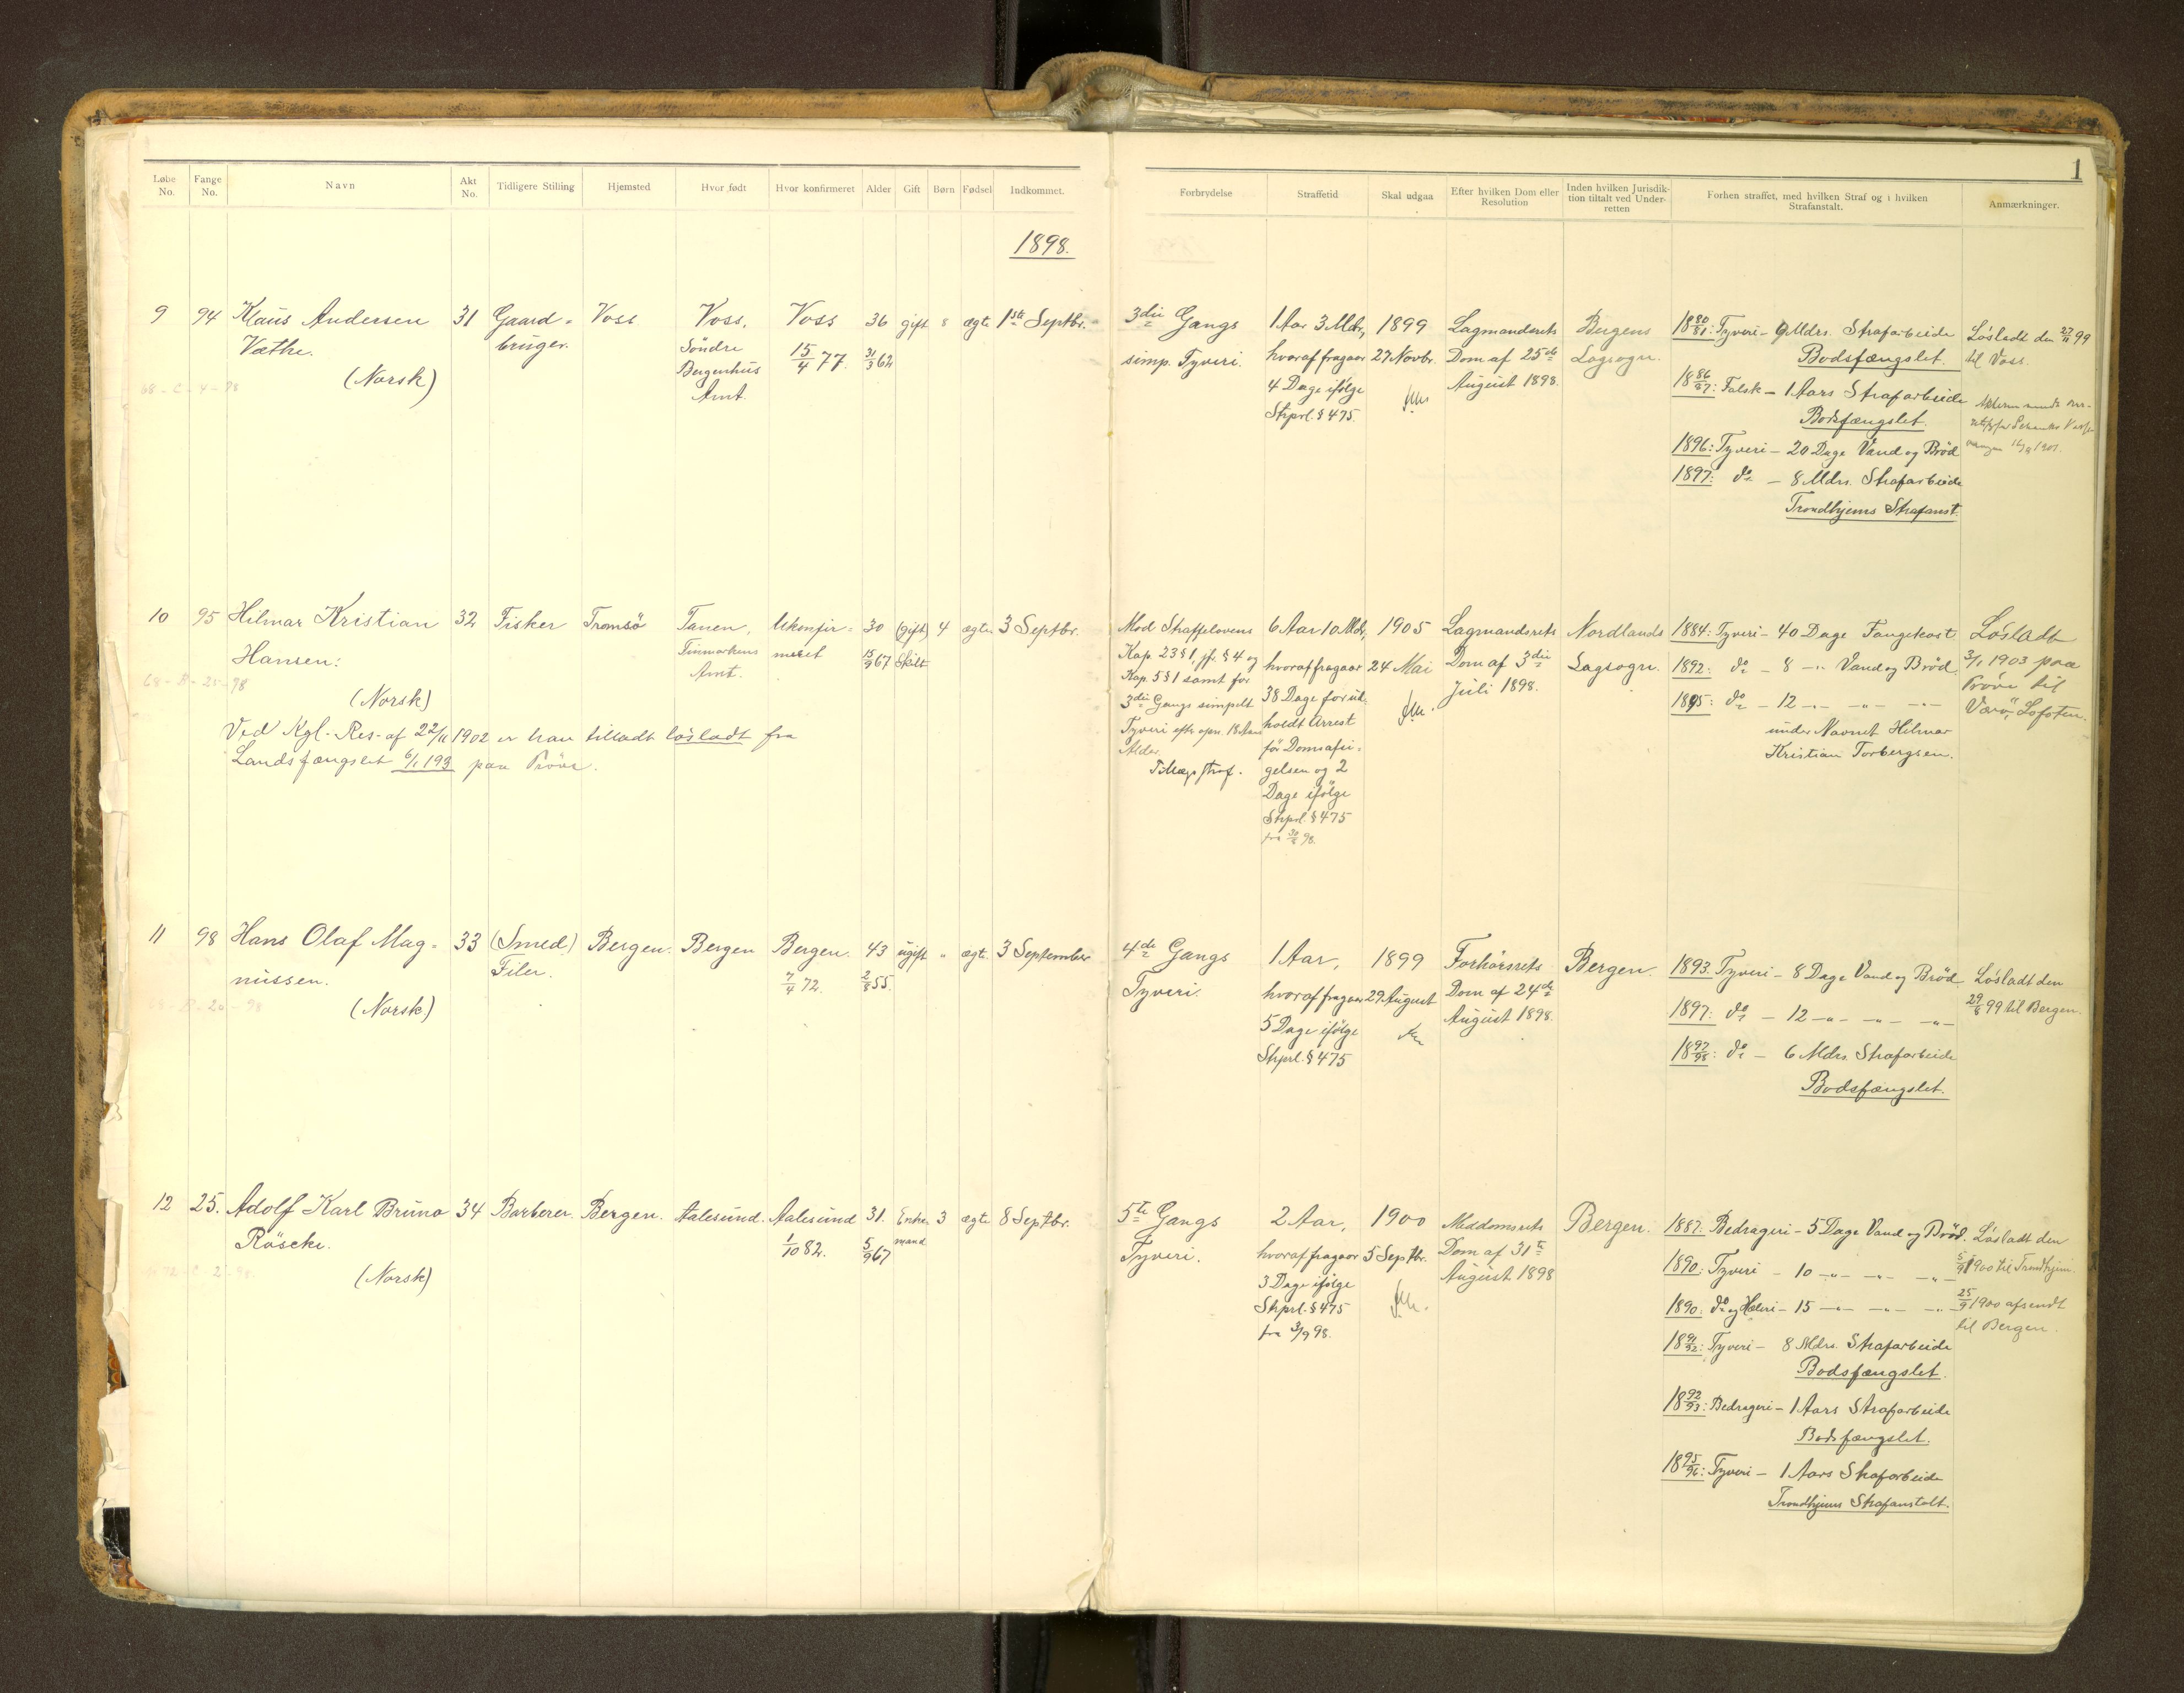 1
Løbe No. Fange No. Navn Akt No. Tidligere Stilling Hjemsted Hvor født Hvor konfirmeret Alder Gift Børn Fødsel Indkommet. Forbrydelse Straffetid Skal udgaa Efter hvilken Dom eller Resolution Inden hvilken Jurisdiktion tiltalt ved Underretten Forhen straffet, med hvilken Straf og i hvilken Strafanstalt. Anmærkninger.
1898.
9 94 Klaus Andersen 31 Gaard= Voss Voss, Voss 36 gift 8 ægte 1ste Septbr.
Væthe. bruger. Søndre 15/4 77. 31/3 62
(Norsk) Bergenhus
Amt.
68-C-4-98
3die Gangs 1 Aar 3 Mdr, 1899 Lagmandsrets Bergens
simp. Tyveri. hvoraf fragaar 27 Novbr. Dom af 25de Lagsogn.
4 Dage ifölge August 1898.
Strprl. § 475.
1880/81: Tyveri - 9 Mdrs. Strafarbeide
Bodsfængslet.
1886/87: Falsk - 1 Aars Strafarbeide
Bodsfængslet.
1896: Tyveri - 20 Dage Vand og Brød
1897: do - 8 Mdrs. Strafarbeide
Trondhjems Strafanst.
Løsladt den 27/11 99
til Voss.
10 95 Hilmar Kristian 32 Fisker Tromsö Tanen, Ukonfir= 30 (gift) 4 ægte 3 Septbr.
Hansen: Finmarkens meret 15/9 67 Skilt
(Norsk) Amt.
68-B-25-98
Ved Kgl. Res. af 22/11 1902 er han tilladt løsladt fra
Landsfængslet 6/1 193 paa Pröve.
Mod Straffelovens 6 Aar 10 Mdr, 1905 Lagmandsrets Nordlands
Kap. 23 § 1, jfr. § 4 og hvoraf fragaar 24 Mai Dom af 3die Lagsogn.
Kap. 5 § 1 samt for 38 Dage for ud= Juli 1898.
3die Gangs simpelt holdt Arrest
Tyveri efter opn. 18 Aars før Domsafsi=
Alder. gelsen og 2
Tillægsstraf. Dage ifölge
Strprl. § 475
fra 30/8 98.
1884: Tyveri - 40 Dage Fangekost
1892: do - 8 -"- Vand og Brød.
1895: do - 12 -"- -"- -"-
under Navnet Hilmar
Kristian Torbergsen.
Løsladt
3/1 1903 paa
Pröve til
Værö, Lofoten.
11 98 Hans Olaf Mag= 33 (Smed) Bergen. Bergen Bergen. 43 ugift " ægte 3 September
nussen. Filer. 7/4 72. 2/8 55.
(Norsk)
68-B-20-98
4de Gangs 1 Aar, 1899 Forhørsrets Bergen.
Tyveri. hvoraf fragaar 29 August Dom af 24de
5 Dage ifölge August 1898.
Strprl. § 475
1893: Tyveri - 8 Dage Vand og Brød
1897: do - 12 -"- -"- -"-
1897/98: do - 6 Mdrs. Strafarbeide
Bodsfængslet.
Løsladt den
29/8 99 til Bergen.
12 25. Adolf Karl Bruno 34 Barberer. Bergen. Aalesund. Aalesund 31. Enke= 3 ægte 8 Septbr.
Röscke. 1/10 82. 5/9 67 mand
(Norsk)
5te Gangs 2 Aar, 1900 Meddomsrets Bergen.
Tyveri. hvoraf fragaar 5 Septbr. Dom af 31te
3 Dage ifölge August 1898
Strprl. § 475
fra 3/9 98.
1887: Bedrageri - 5 Dage Vand og Brød.
1890: Tyveri - 10 -"- -"- -"-
1890: do og Hæleri - 15 -"- -"- -"-
1891/92: Tyveri - 8 Mdrs. Strafarbeide
Bodsfængslet.
1892/93: Bedrageri - 1 Aars Strafarbeide
Bodsfængslet.
1895/96: Tyveri - 1 Aars Strafarbeide
Trondhjems Strafanstalt.
Løsladt den
5/9 1900 til Trondhjem.
25/9 1900 afsendt
til Bergen.